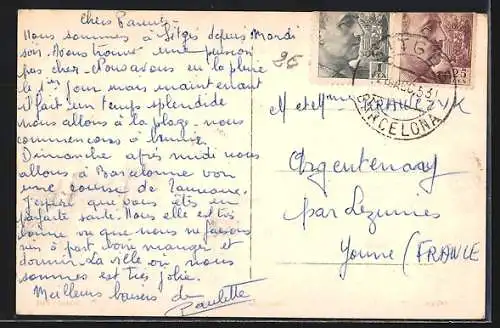 Chers Parents -
Nous sommes à Sitges depuis Mardi
soir. Nous trouver une pension
pas cher. Nous avons eu la pluie
le 1er jour mais maintenant
il fait un temps splendide
nous allons à la plage nous
commençons à brunir.
Dimanche après midi nous
allons à Barcelonne voir
une course de Taureaux.
J'espère que vous êtes en
parfaite santé. Nous elle est très
bonne vu que nous ne faisons
rien à part boire manger et
dormir. La ville où nous
sommes est très jolie.
Meilleurs baisers de
Paulette
25
SITGES
BARCELONA
25
M et Mme KRAWEZYK
Argentenay
par Lezinnes
Yonne (FRANCE)